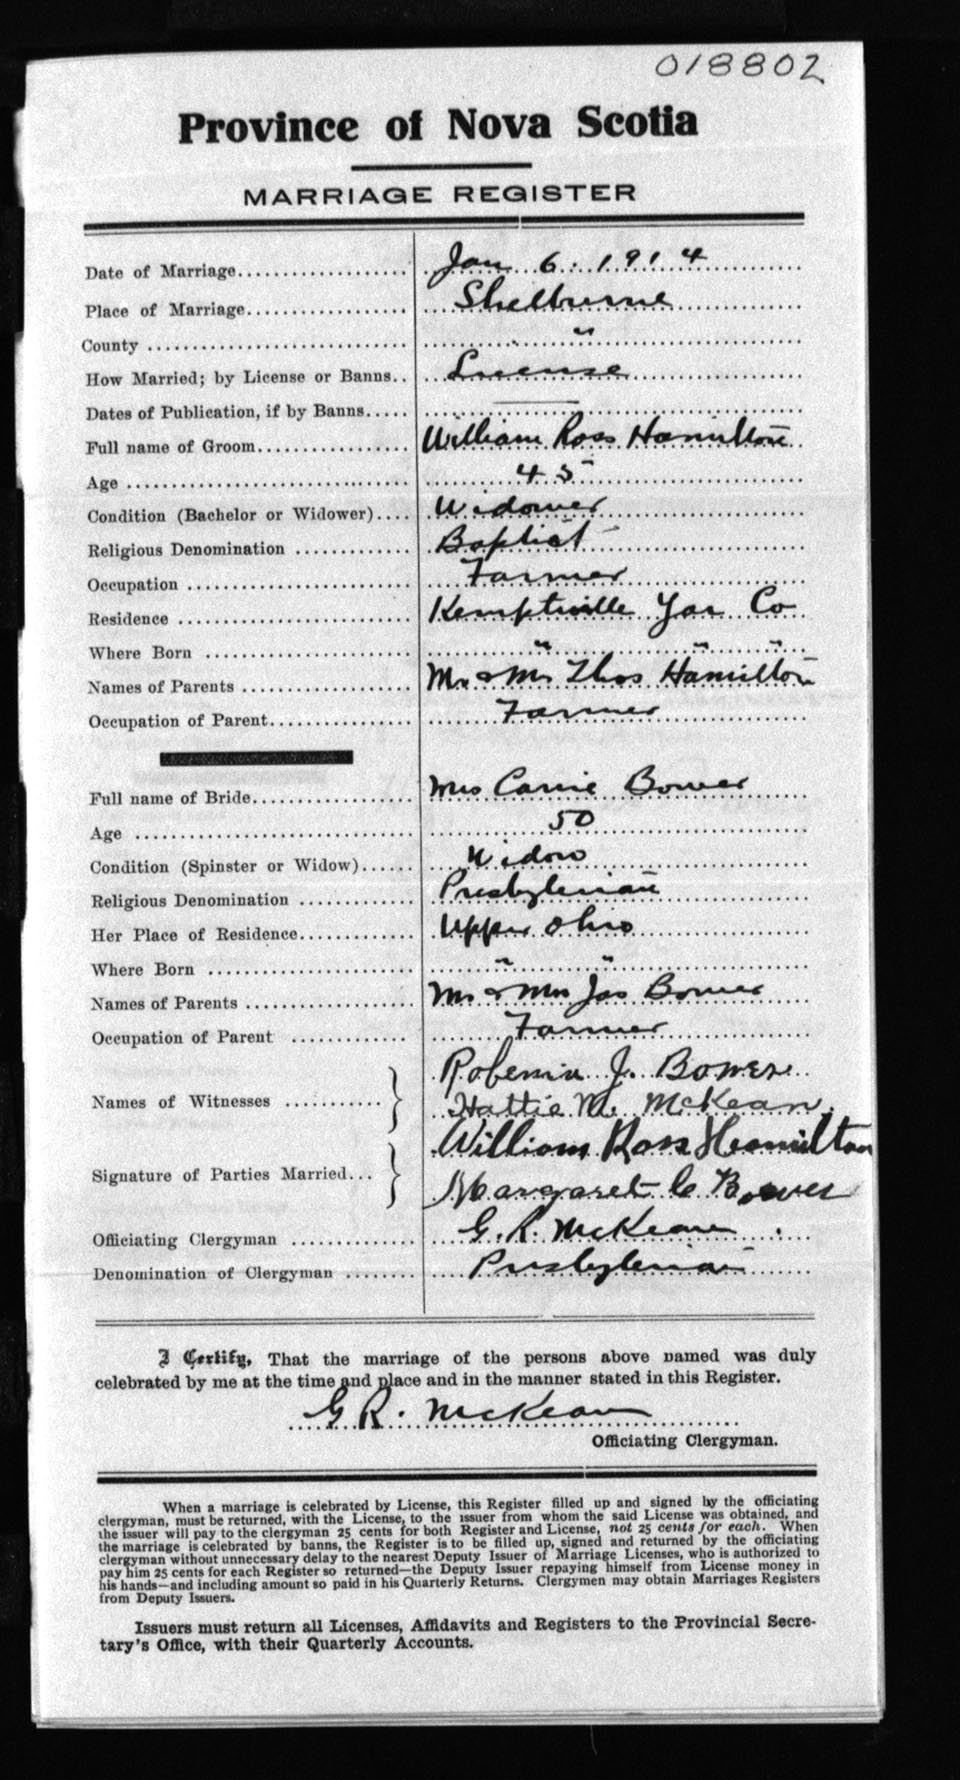 018802
Province of Nova Scotia
MARRIAGE REGISTER
Date of Marriage.................... Jan 6. 1914
Place of Marriage................... Shelburne
County .............................. "
How Married; by License or Banns.. License
Dates of Publication, if by Banns..... ———
Full name of Groom.................. William Ross Hamilton
Age .................................. 45
Condition (Bachelor or Widower).... Widower
Religious Denomination ............. Baptist
Occupation .......................... Farmer
Residence ........................... Kemptville Yar Co
Where Born ......................... " " "
Names of Parents ................... Mr & Mrs Thos Hamilton
Occupation of Parent................ Farmer
Full name of Bride.................. Mrs Carrie Bower
Age .................................. 50
Condition (Spinster or Widow)...... Widow
Religious Denomination ............. Presbyterian
Her Place of Residence.............. Upper Ohio
Where Born ......................... " "
Names of Parents ................... Mr & Mrs Jas Bower
Occupation of Parent .............. Farmer
Names of Witnesses ........... } J. Bower
Hattie M. McKean
Signature of Parties Married... } William Ross Hamilton
Margaret C Bower
Officiating Clergyman .............. G. R. McKean
Denomination of Clergyman ........ Presbyterian
I Certify, That the marriage of the persons above named was duly
celebrated by me at the time and place and in the manner stated in this Register.
G R. McKean
Officiating Clergyman.
When a marriage is celebrated by License, this Register filled up and signed by the officiating
clergyman, must be returned, with the License, to the issuer from whom the said License was obtained, and
the issuer will pay to the clergyman 25 cents for both Register and License, not 25 cents for each. When
the marriage is celebrated by banns, the Register is to be filled up, signed and returned by the officiating
clergyman without unnecessary delay to the nearest Deputy Issuer of Marriage Licenses, who is authorized to
pay him 25 cents for each Register so returned—the Deputy Issuer repaying himself from License money in
his hands—and including amount so paid in his Quarterly Returns. Clergymen may obtain Marriages Registers
from Deputy Issuers.
Issuers must return all Licenses, Affidavits and Registers to the Provincial Secre-
tary's Office, with their Quarterly Accounts.